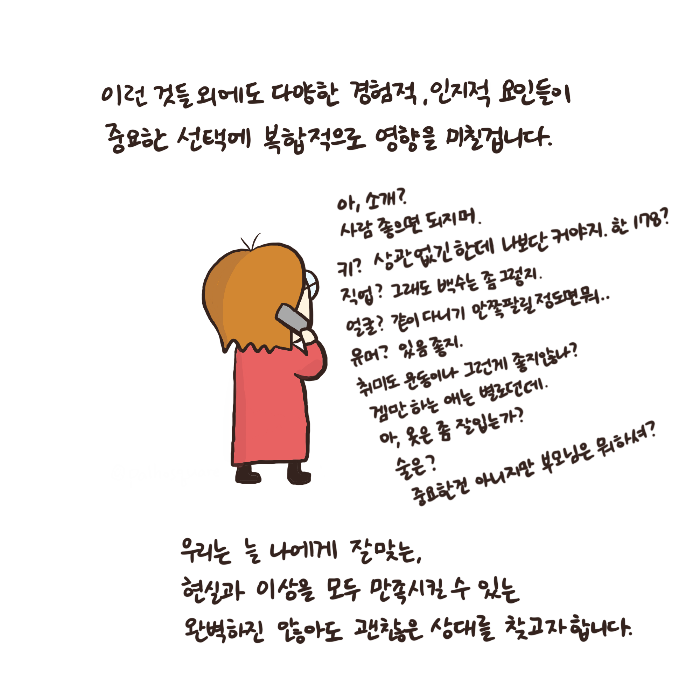 이런 것들 외에도 다양한 경험적, 인지적 요인들이
중요한 선택에 복합적으로 영향을 미칠겁니다.
아, 소개?
사람 좋으면 되지머.
키? 상관없긴한데 나보단 커야지. 한 178?
직업? 그래도 백수는 좀 그렇지.
얼굴? 같이 다니기 안쪽팔릴 정도면뭐..
유머? 있음 좋지.
취미도 운동이나 그런게 좋지않나?
겜만 하는 애는 별로던데.
아, 옷은 좀 잘입는가?
술은?
중요한건 아니지만 부모님은 뭐하셔?
우리는 늘 나에게 잘맞는,
현실과 이상을 모두 만족시킬 수 있는
완벽하진 않아도 괜찮은 상대를 찾고자합니다.